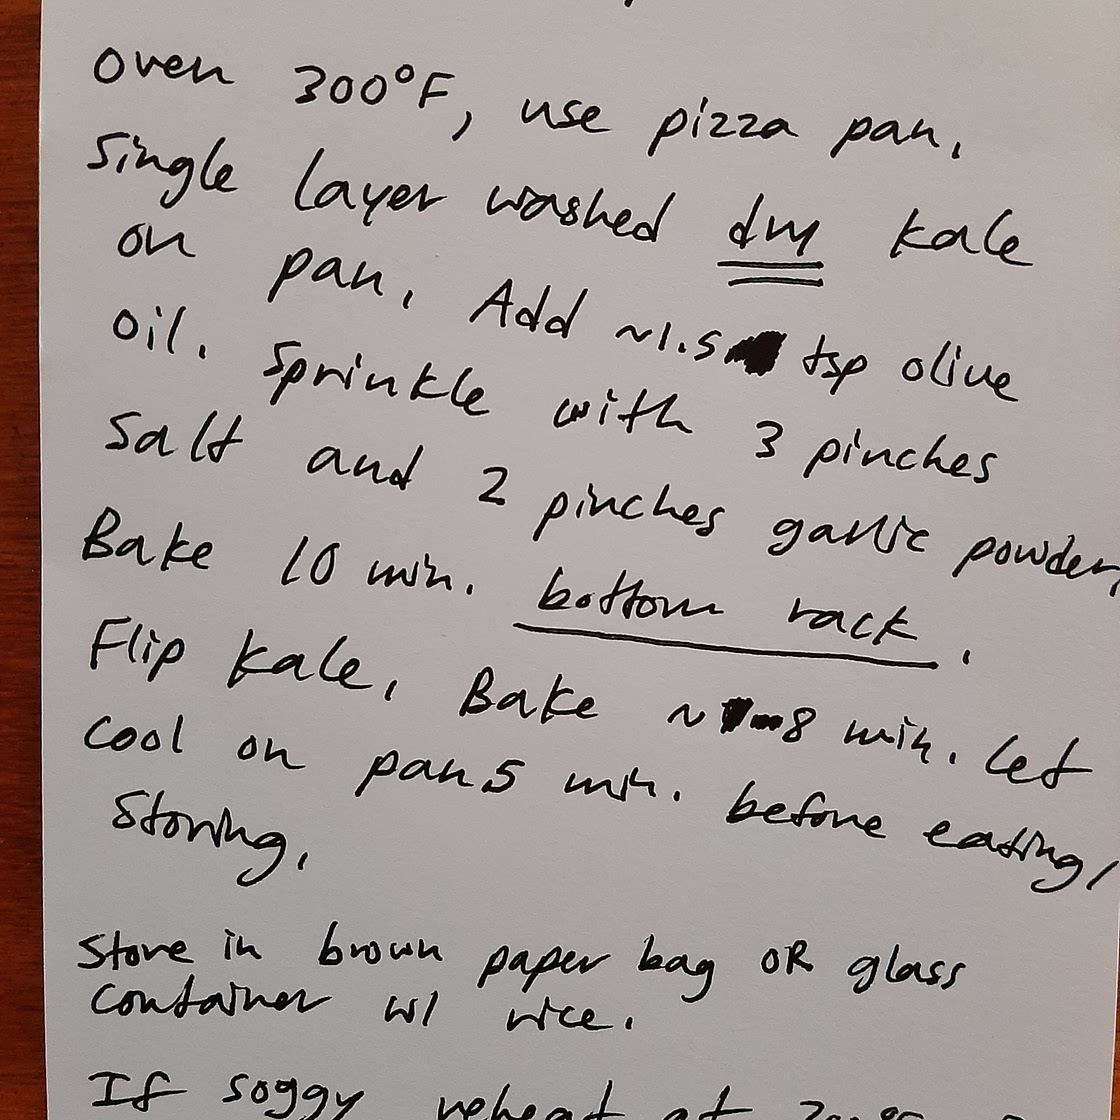 Oven 300°F, use pizza pan.
Single layer washed dry kale
on pan. Add ~1.5 tsp olive
oil. Sprinkle with 3 pinches
salt and 2 pinches garlic powder,
Bake 10 min. bottom rack.
Flip kale, Bake ~8 min. Let
cool on pan 5 min. before eating/
storing.
Store in brown paper bag OR glass
container w/ rice.
If soggy reheat at